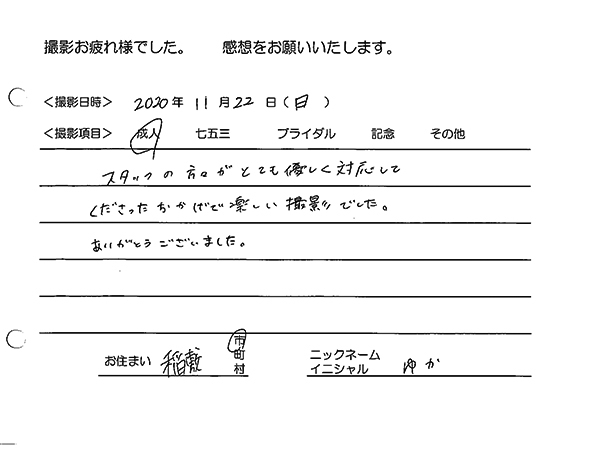 撮影お疲れ様でした。 感想をお願いいたします。
＜撮影日時＞ 2020年 11月 22日（日）
＜撮影項目＞ 成人 七五三 ブライダル 記念 その他
スタッフの方々がとても優しく対応して
くださったおかげで楽しい撮影でした。
ありがとうございました。
お住まい 稲敷 市町村 ニックネーム イニシャル ゆか